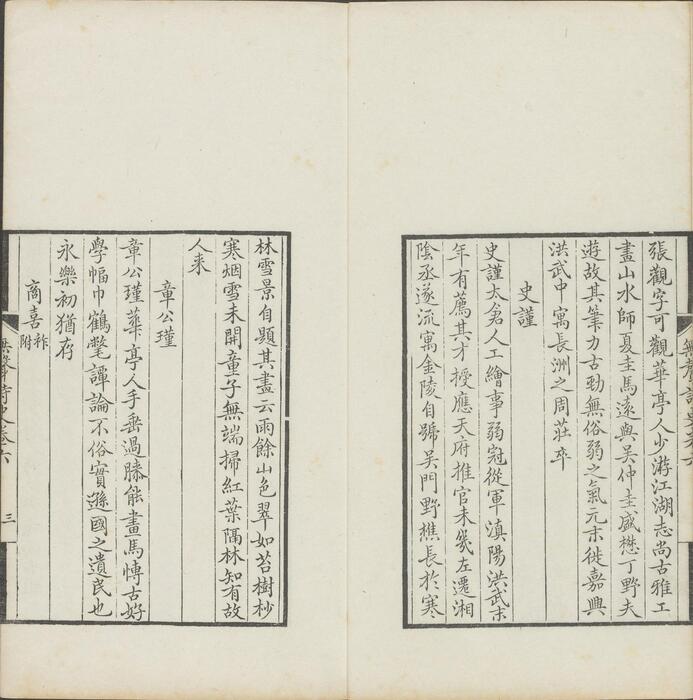 張觀字可觀華亭人少游江湖志尚古雅工
畫山水師夏圭馬遠與吳仲圭盛懋丁野夫
遊故其筆力古勁無俗弱之氣元末徙嘉興
洪武中寓長洲之周莊卒
史謹
史謹太倉人工繪事弱冠從軍滇陽洪武末
年有薦其才授應天府推官未幾左遷湘
陰丞遂流寓金陵自號吳門野樵長於寒
林雪景自題其畫云雨餘山色翠如苔樹杪
寒烟雪未開童子無端掃紅葉隔林知有故
人来
章公瑾
章公瑾華亭人手垂過膝能畫馬博古好
學幅巾鶴氅譚論不俗實遜國之遺民也
永樂初猶存
商喜祚附
無聲詩史卷六
三